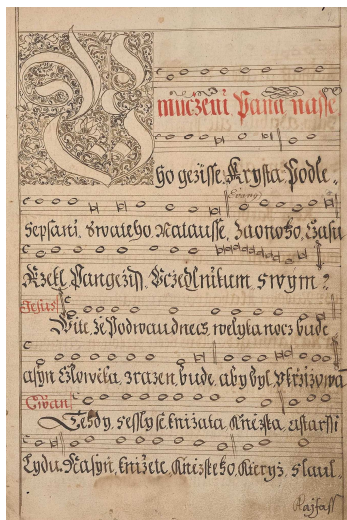 Umučzeni Pana nasse
ho gežisse Krysta Podle
Sepsani, Swateho, Matausse, Zaonoho, čzasu
Rzekl Pangezis, Vczedlnikum, swym
Jesus
Wite, že Podwau dnech, welyka nocz bude
asyn cžlowieka, zrazen bude, aby byl Vkrzižowa
Ewan
Tehdy, sessly se knižata, Knězska, astarssi
Lydu, Nasyň, knižete, Kniezskeho, kteryž slaul
Kajfass